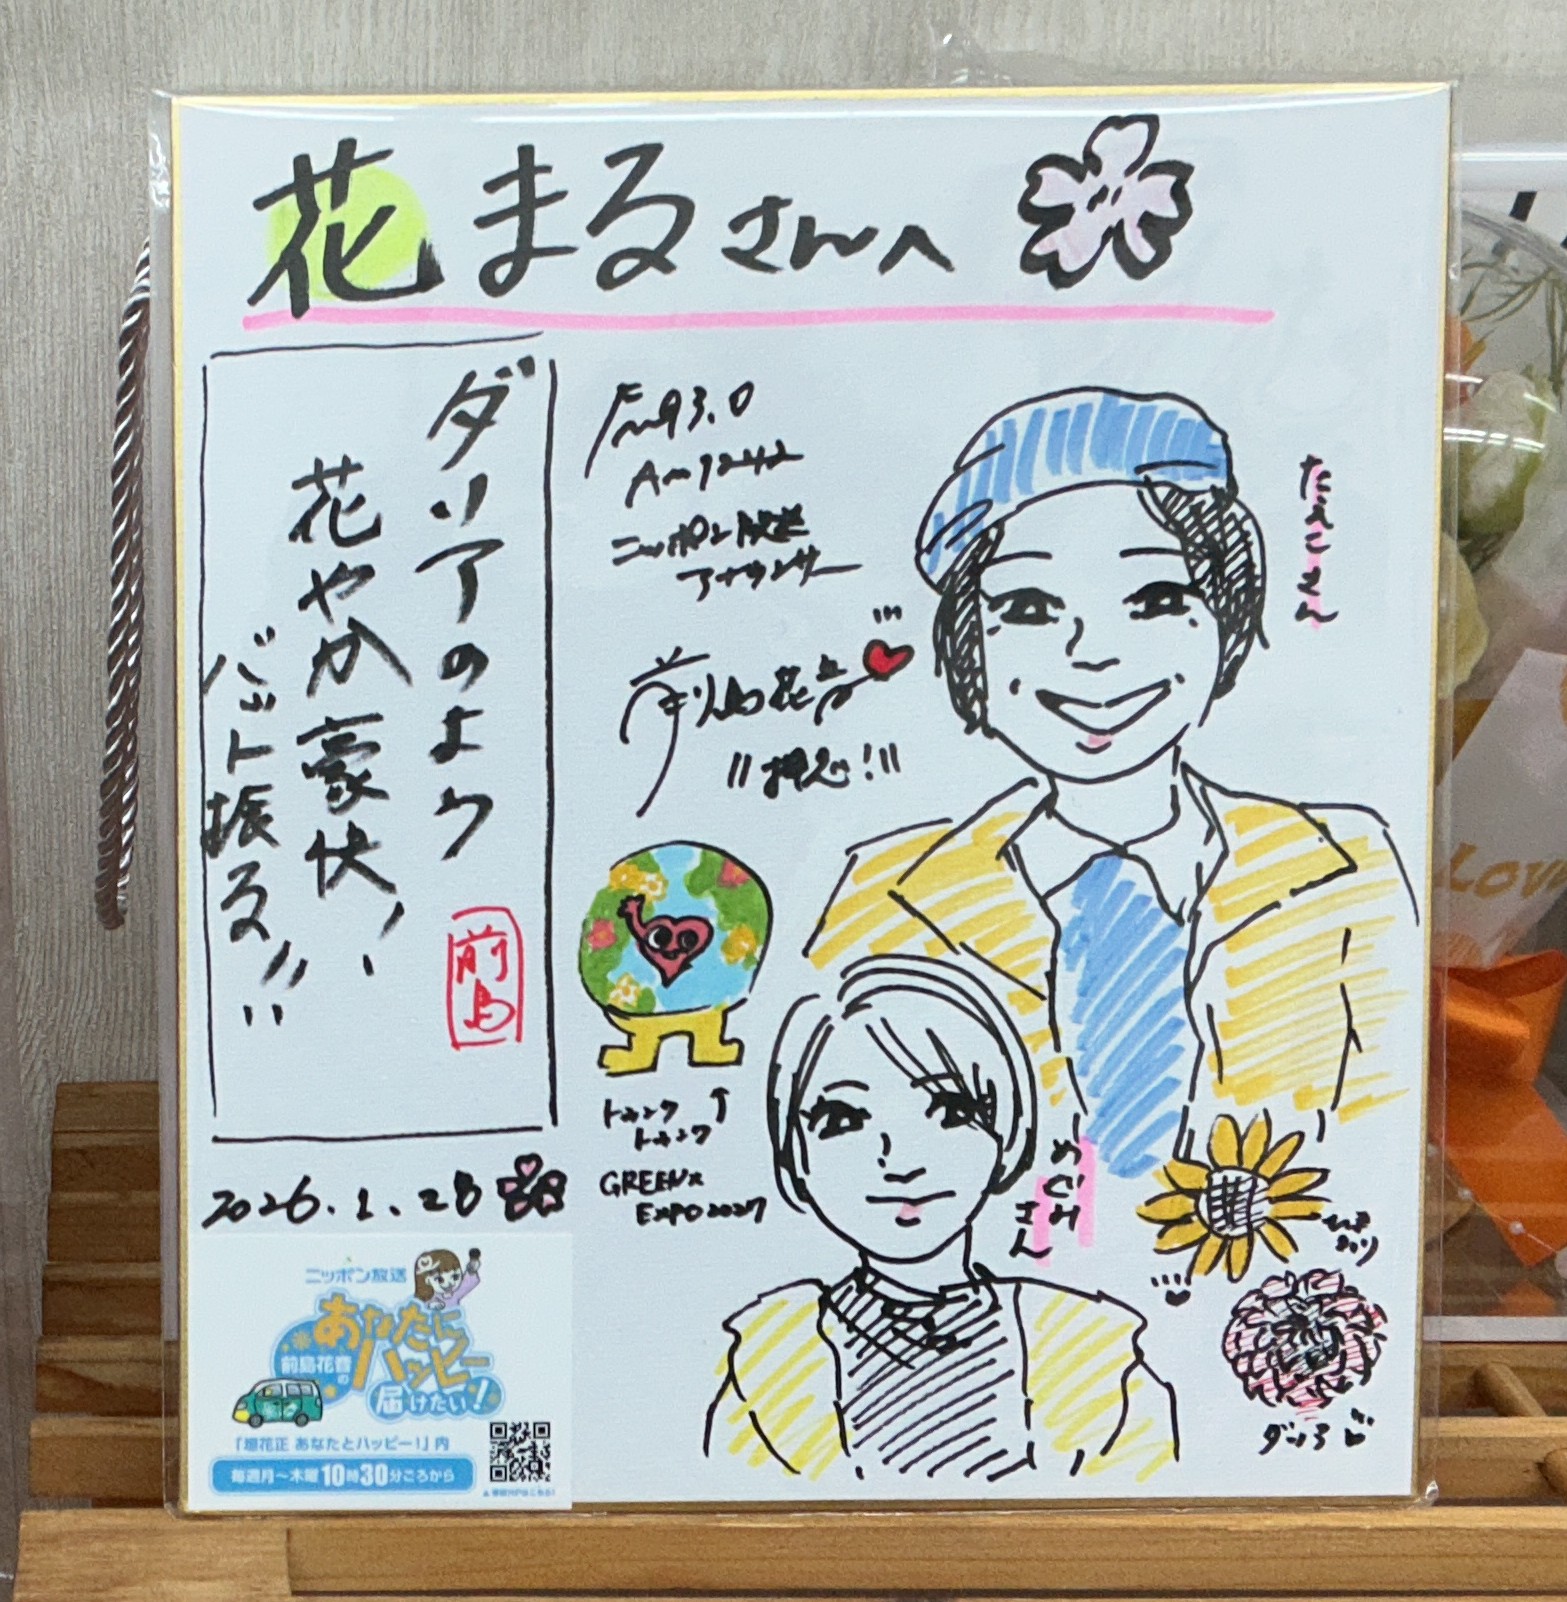 花まるさんへ
ダリアのよう
花やか豪快！、
バット振る〃
前島
Fm93.0
Am1242
ニッポン放送
アナウンサー
前島花音
"押忍!"
たえこさん
トゥンク↑
トゥンク
GREEN×
EXPO2027
めぐみ
さん
ひま
わり
ダリア
2026.1.28
ニッポン放送
前島花音の
あなたにハッピー
届けたい！
「垣花正 あなたとハッピー！」内
毎週月〜木曜10時30分ごろから